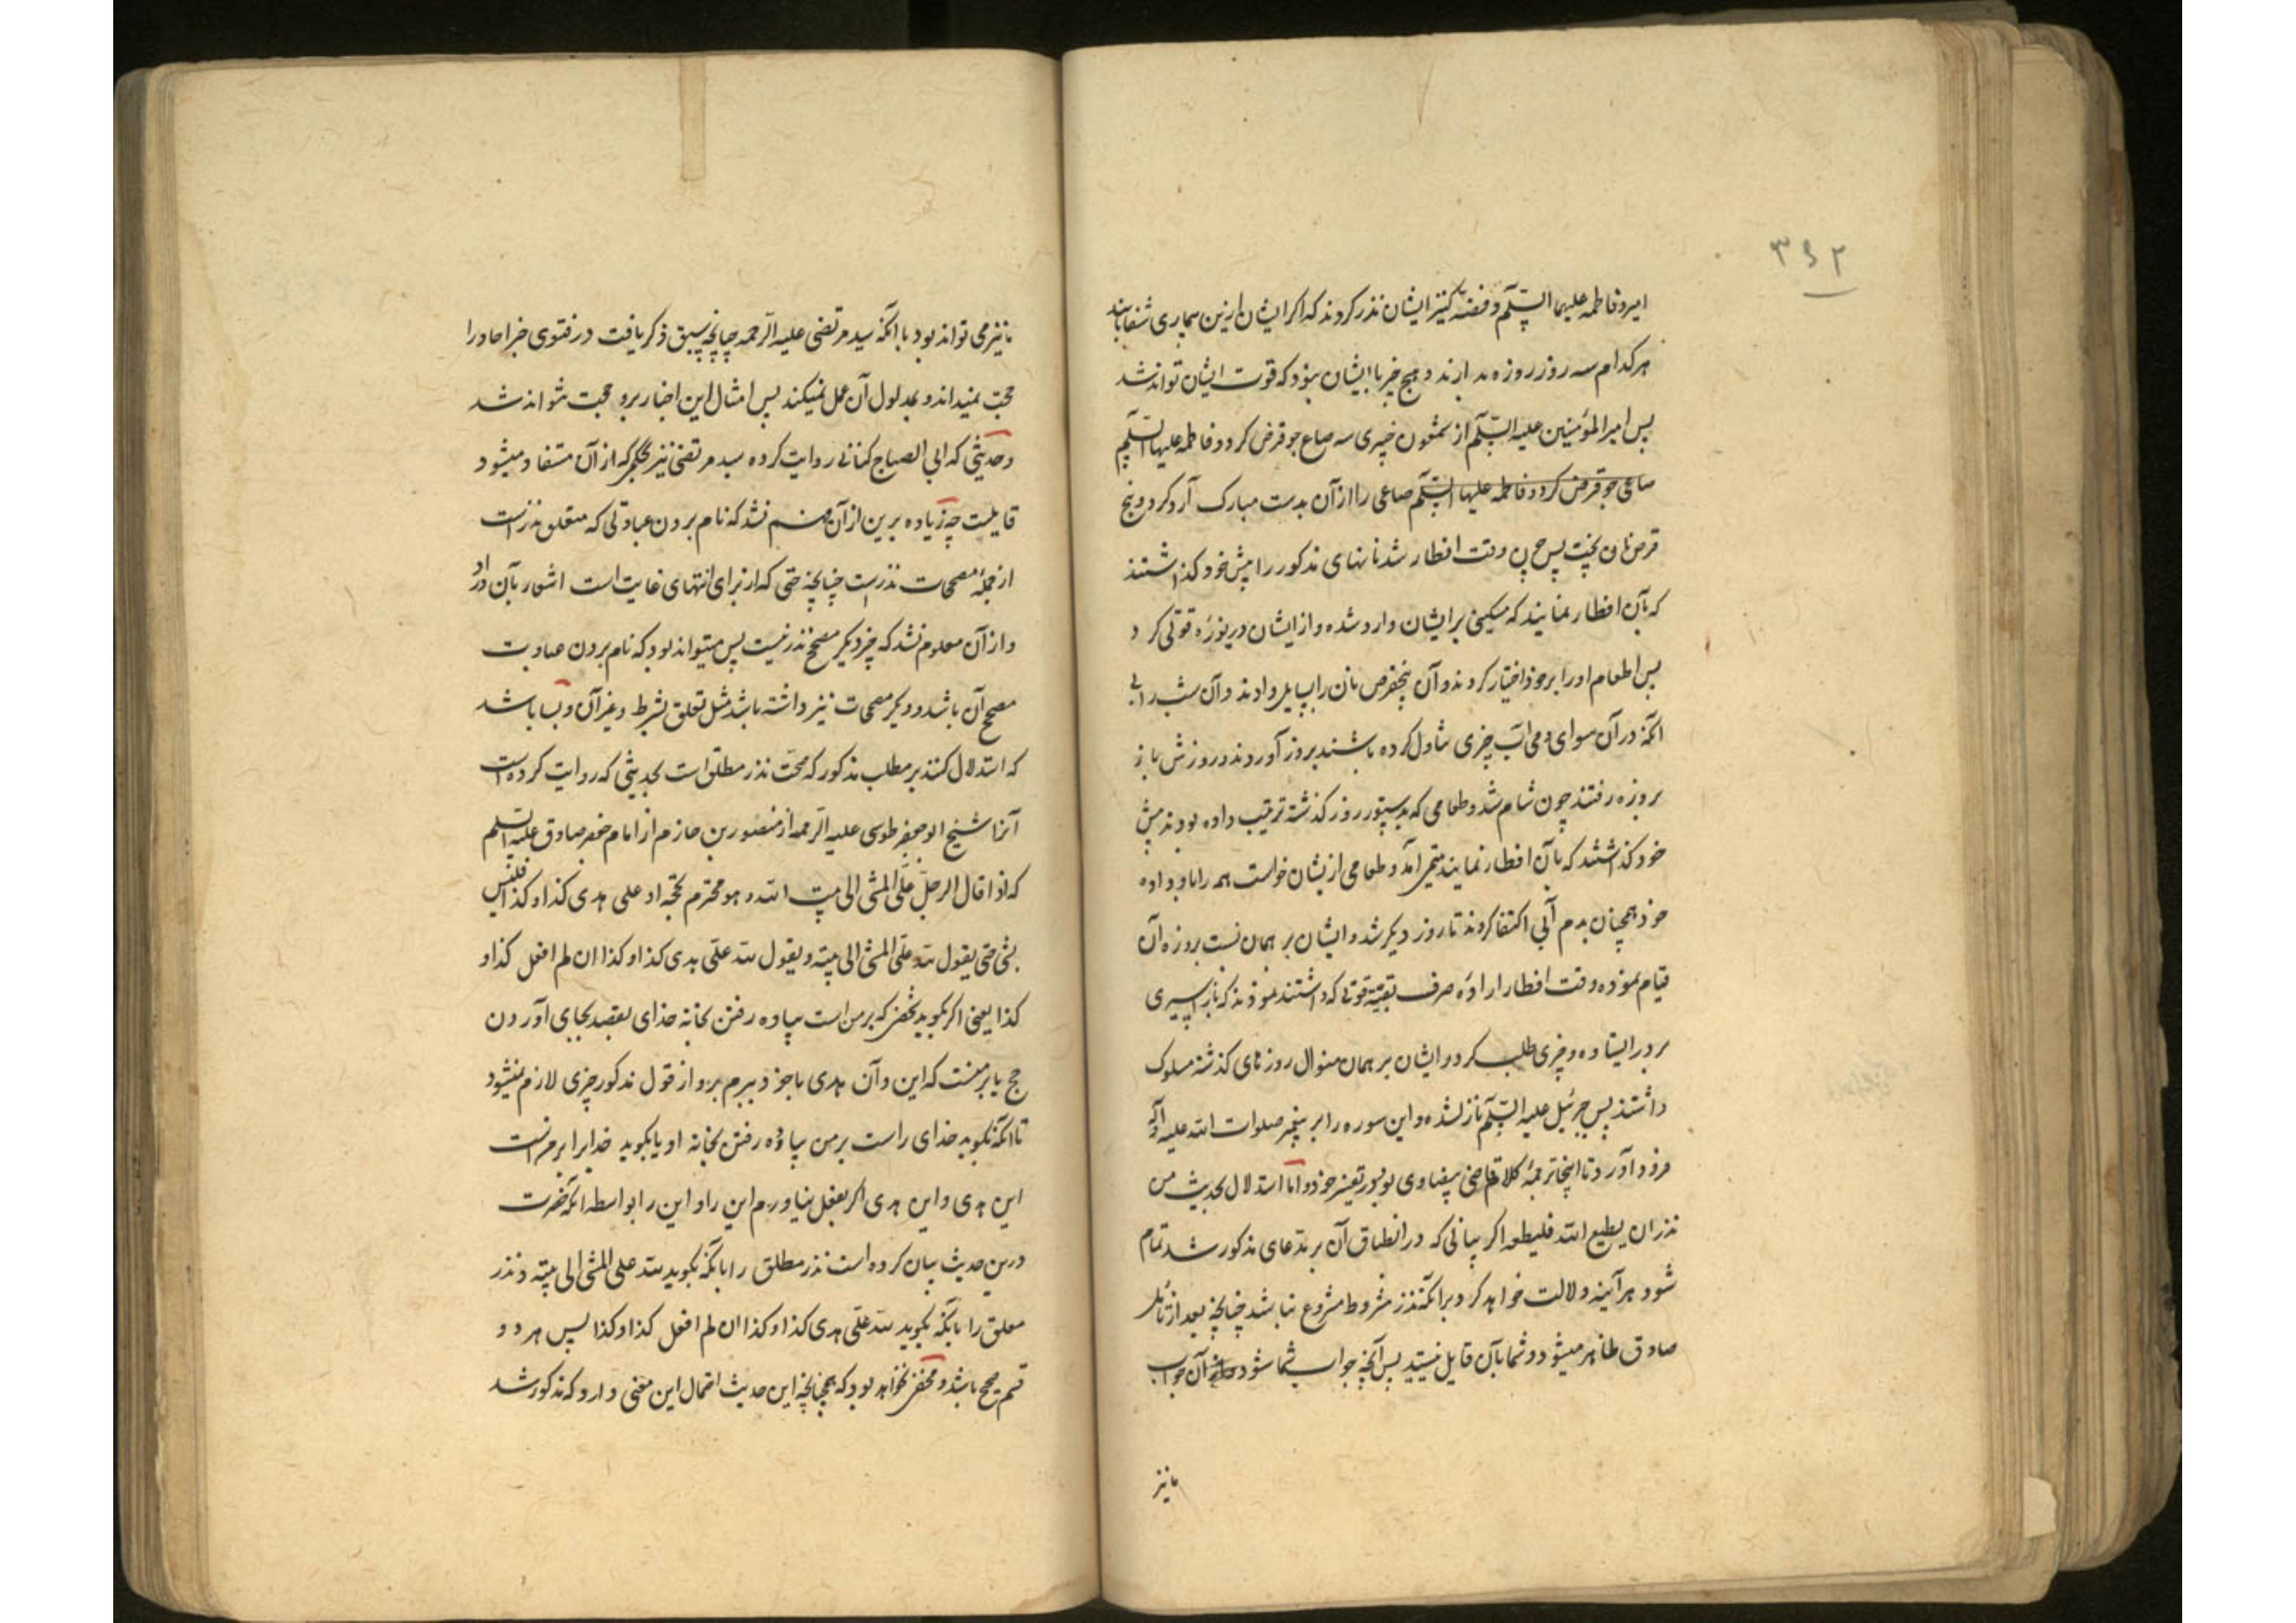 ۳۹۲
امیر و فاطمه علیهما السّلم و فضّه کنیز ایشان نذر کردند که اکر ایشان ازین بیماری شفا یابند
هر کدام سه روز روزه بدارند و هیچ چیز با ایشان نبود که قوت ایشان تواند شد
پس امیر المؤمنین علیه السّلم از شمعون خیبری سه صاع جو قرض کرد و فاطمه علیها السّلم
صاعی جو قرض کرد و فاطمه علیها السّلم صاعی را از آن بدست مبارک آرد کرد و پنج
قرص نان پخت پس چون وقت افطار شد نانهای مذکور را پیش خود کذاشتند
که بآن افطار نمایند که مسکینی بر ایشان وارد شده و از ایشان دریوزهٔ قوتی کرد
پس اطعام او را بر خود اختیار کردند و آن پنج قرص نان را بسایل دادند و آن شب را بی
آنکه در آن سوای دمی آب چیزی تناول کرده باشند بروز آوردند و روزش باز
بروزه رفتند چون شام شد و طعامی که بدستور روز کذشته ترتیب داده بودند پیش
خود کذاشتند که بآن افطار نمایند یتیمی آمد و طعامی ازیشان خواست همه را باو داده
خود همچنان بدم آبی اکتفا کردند تا روز دیکر شد و ایشان بر همان نسبت بروزه آن
قیام نموده وقت افطار ارادهٔ صرف بقیهٔ قوتی که داشتند نمودند که باز اسیری
بر در ایستاده و چیزی طلب کرد و ایشان بر همان منوال روزهای کذشته مسلوک
داشتند پس جبرئیل علیه السّلم نازل شده و این سوره را بر پیغمبر صلوات الله علیه و آله
فرود آورد تا اینجا ترجمهٔ کلام قاضی بیضاوی بود در تفسیر خود و امّا استدلال بحدیث من
نذر ان یطیع الله فلیطعه اکر بیانی که در انطباق آن بر مدعای مذکور شد تمام
شود هر آینه دلالت خواهد کرد بر آنکه نذر مشروط مشروع نباشد چنانچه بعد از تأمل
صادق ظاهر میشود و شما بآن قایل نیستید پس آنچه جواب شما شود از آن جواب
ما نیز
ما نیز می تواند بود با آنکه سید مرتضی علیه الرّحمه چنانچه سبق ذکر یافت در فتوی خبر احاد را
حجت نمیداند و بمدلول آن عمل نمیکند پس امثال این اخبار برو حجت نتواند شد
و حدیثی که ابی الصباح کنانی روایت کرده سید مرتضی نیز بحکمی که از آن مستفاد میشود
قایلست چه زیاده برین از آن فهم نشد که نام بردن عبادتی که متعلق نذرست
از جملهٔ مصححات نذرست چنانچه حتی که از برای انتهای غایت است اشعار بآن دارد
و از آن معلوم نشد که چیز دیکر مصحح نذر نیست پس میتواند بود که نام بردن عبادت
مصحح آن باشد و دیکر مصححات نیز داشته باشد مثل تعلق بشرط و غیر آن و بسا باشد
که استدلال کنند بر مطلب مذکور که صحّت نذر مطلق است بحدیثی که روایت کرده است
آنرا شیخ ابو جعفر طوسی علیه الرّحمه از منصور بن حازم از امام جعفر صادق علیه السّلم
که اذا قال الرجل علیّ المشی الی بیت الله و هو محرم بحجّه او علی هدی کذا و کذا فلیس
بشی حتی یقول لله علیّ المشی الی بیته و یقول لله علیّ هدی کذا و کذا ان لم افعل کذا و
کذا یعنی اکر بکوید شخصی که بر من است پیاده رفتن بخانه خدای بقصد بجای آوردن
حج یا بر منست که این و آن هدی با خود ببرم برو از قول مذکور چیزی لازم نمیشود
تا آنکه نکوید خدای راست بر من پیاده رفتن بخانه او یا بکوید خدایرا بر منست
این هدی و این هدی اکر بفعل نیاورم این را و این را بواسطه آنکه آنحضرت
درین حدیث بیان کرده است نذر مطلق را بآنکه بکوید لله علی المشی الی بیته و نذر
معلق را بآنکه بکوید لله علیّ هدی کذا و کذا ان لم افعل کذا و کذا پس هر دو
قسم صحیح باشد و مخفی نخواهد بود که همچنانچه این حدیث احتمال این معنی دارد که مذکور شد